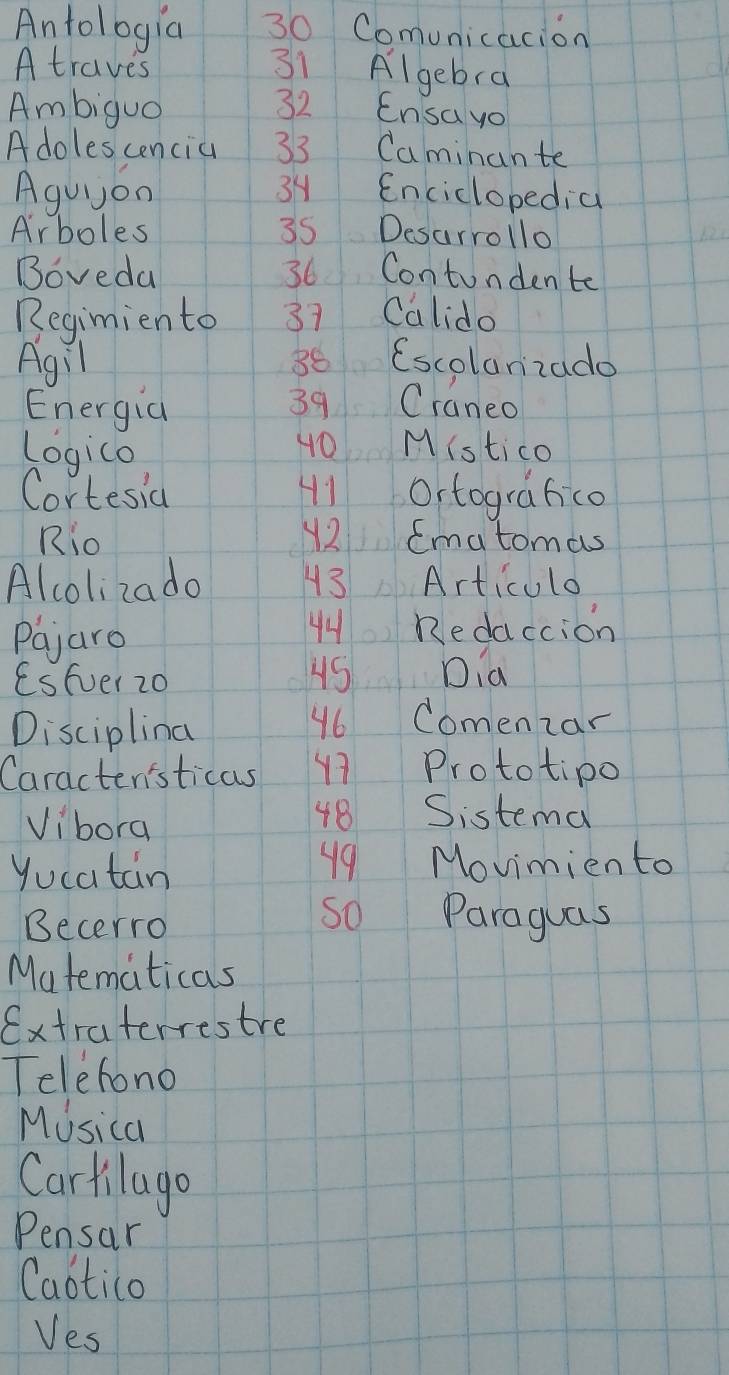 Antología
A través
Ambiguo
Adolescencia
Aguijón
Árboles
Bóveda
Regimiento
Ágil
Energía
Lógico
Cortesía
Río
Alcolizado
Pájaro
Esfuerzo
Disciplina
Características
Víbora
Yucatán
Becerro
Matemáticas
Extraterrestre
Teléfono
Música
Cartílago
Pensar
Caótico
Ves
30 Comunicación
31 Álgebra
32 Ensayo
33 Caminante
34 Enciclopedia
35 Desarrollo
36 Contundente
37 Cálido
38 Escolarizado
39 Cráneo
40 Místico
41 Ortográfico
42 Ematomas
43 Artículo
44 Redacción
45 Día
46 Comenzar
47 Prototipo
48 Sistema
49 Movimiento
50 Paraguas